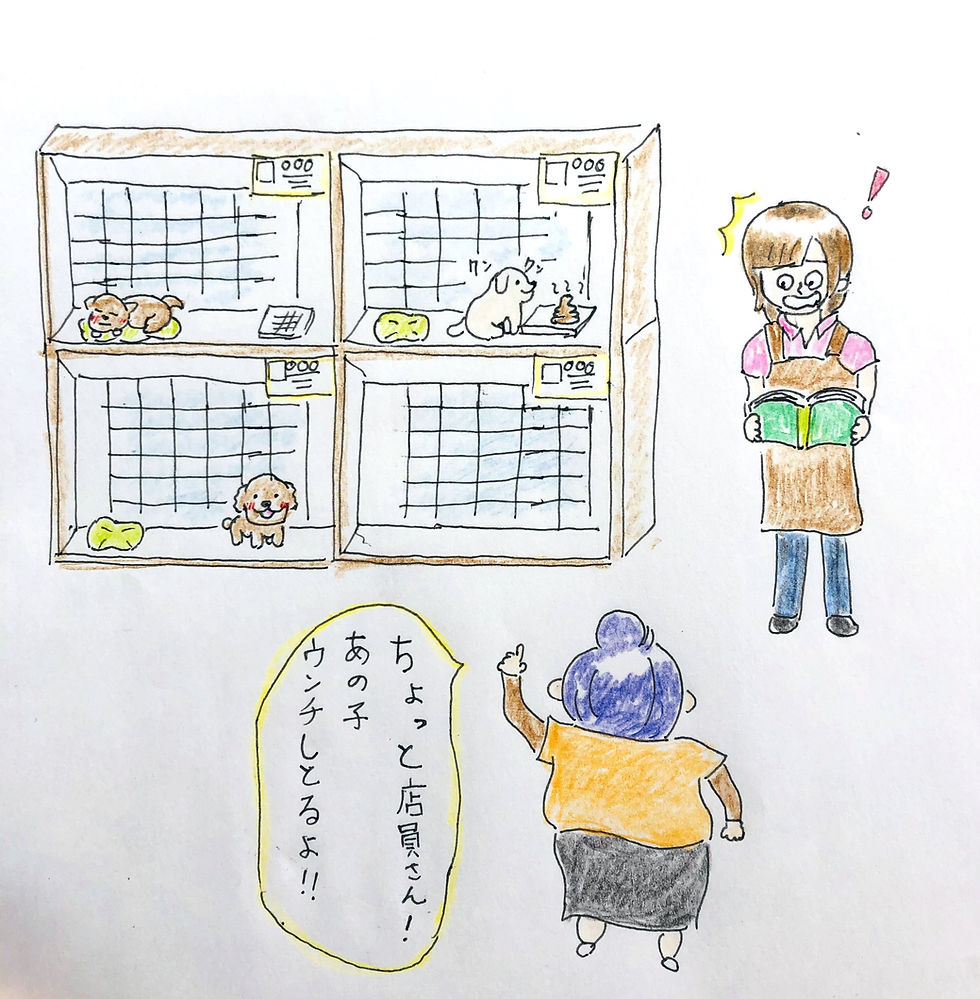 クン クン
ちょっと店員さん!
あの子
ウンチしとるよ!!